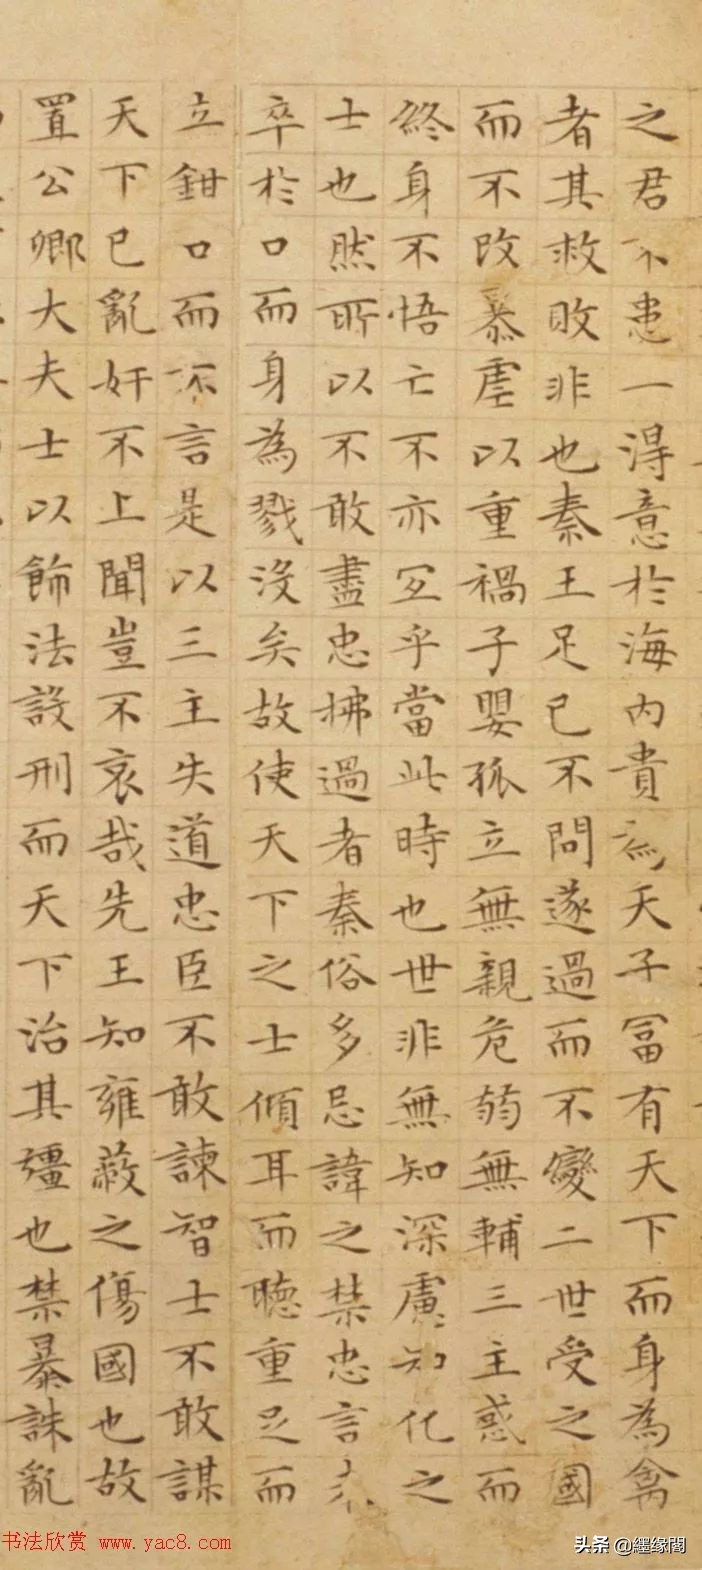 之君不患一淂意於海内貴為天子冨有天下而身為禽
者其救敗非也秦王足已不問遂過而不變二世受之國
而不改暴虐以重禍子嬰孤立無親危弱無輔三主惑而
終身不悟亡不亦冝乎當此時也世非無知深慮知化之
士也然所以不敢盡忠拂過者秦俗多忌諱之禁忠言未
卒於口而身為戮沒矣故使天下之士傾耳而聽重足而
立鉗口而不言是以三主失道忠臣不敢諫智士不敢謀
天下已亂奸不上聞豈不哀哉先王知雍蔽之傷國也故
置公卿大夫士以飾法設刑而天下治其彊也禁暴誅亂
书法欣赏 www.yac8.com
头条 @纆缘閣